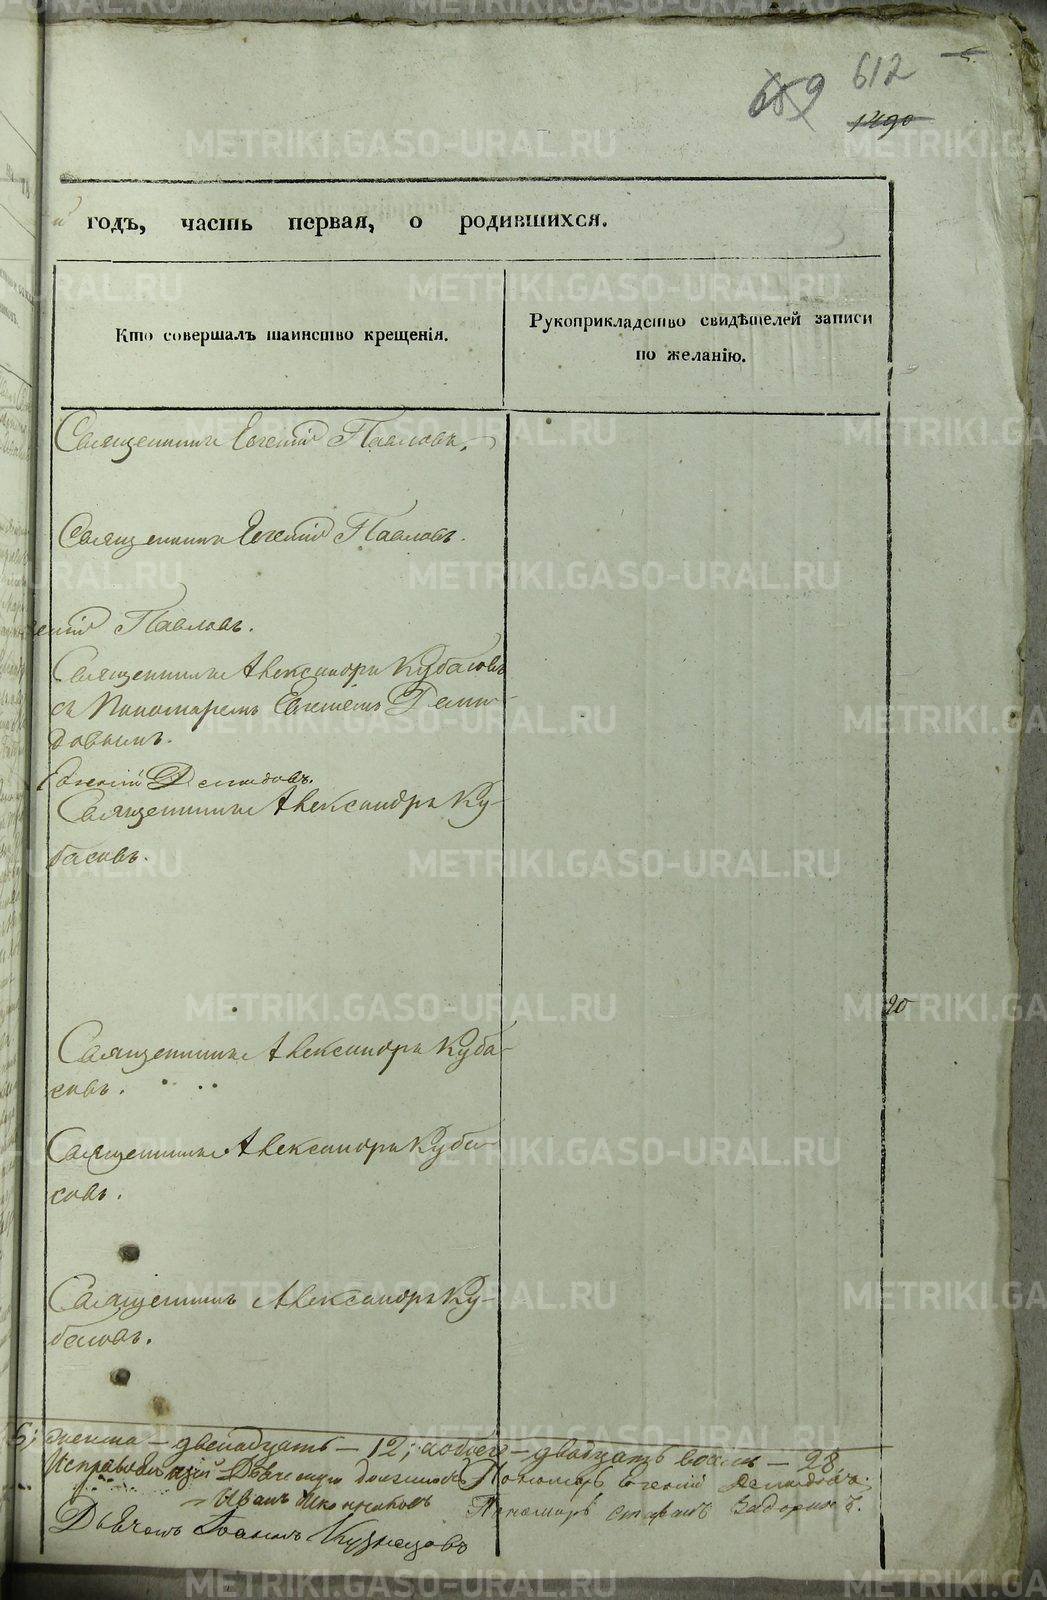 612
689
1290
годъ, часть первая, о родившихся.
Кто совершалъ таинство крещенія.
Рукоприкладство свидѣтелей записи
по желанію.
Священникъ Евгеній Павловъ.
Священникъ Евгеній Павловъ.
Павловъ.
Священникъ Александръ Кубасовъ
съ Пономаремъ Евгеніемъ Деми-
довымъ.
Евгеній Демидовъ.
Священникъ Александръ Ку-
басовъ.
20
Священникъ Александръ Куба-
совъ.
Священникъ Александръ Куба-
совъ.
Священникъ Александръ Ку-
басовъ.
6; женска – двенадцать – 12; обоего – двадцать восемь – 28.
Исправляющій Дьяческую должность Пономарь Евгеній Демидовъ.
Иванъ
Пономарь Стефанъ
Дьячокъ Іоаннъ Кузнецовъ
METRIKI.GASO-URAL.RU